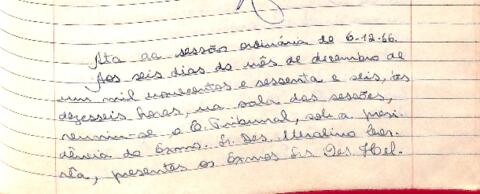 Ata da sessão ordinária de 6-12-66.
Aos seis dias do mês de dezembro de
um mil novecentos e sessenta e seis, às
dezesseis horas, na sala das sessões,
reuniu-se o E. Tribunal, sob a presi-
dência do Exmo. Sr. Des.
presentes os Exmos Srs Des. Hel-